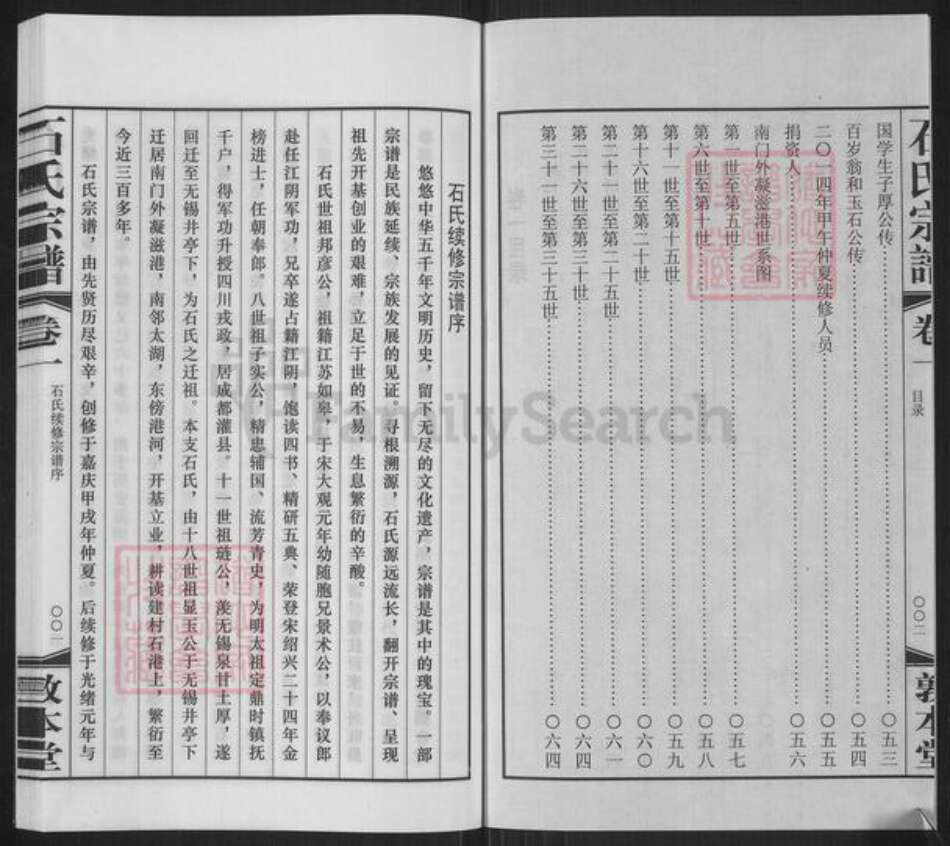 石氏宗譜
卷一
目录
〇〇二
敦本堂
国学生子厚公传……〇五三
百岁翁和玉石公传……〇五四
二〇一四年甲午仲夏续修人员……〇五五
捐资人……〇五六
南门外凝滋港世系图
第一世至第五世……〇五七
第六世至第十世……〇五八
第十一世至第十五世……〇五九
第十六世至第二十世……〇六〇
第二十一世至第二十五世……〇六一
第二十六世至第三十世……〇六四
第三十一世至第三十五世……〇六四
石氏续修宗谱序
悠悠中华五千年文明历史，留下无尽的文化遗产，宗谱是其中的瑰宝。一部
宗谱是民族延续、宗族发展的见证。寻根溯源，石氏源远流长，翻开宗谱、呈现
祖先开基创业的艰难、立足于世的不易，生息繁衍的辛酸。
石氏世祖邦彦公，祖籍江苏如皋，于宋大观元年幼随胞兄景术公，以奉议郎
赴任江阴军功，兄卒遂占籍江阴，饱读四书、精研五典、荣登宋绍兴二十四年金
榜进士，任朝奉郎。八世祖子实公，精忠辅国、流芳青史，为明太祖定鼎时镇抚
千户，得军功升授四川戎政，居成都灌县。十一世祖琏公，羡无锡泉甘土厚，遂
回迁至无锡井亭下，为石氏之迁祖。本支石氏，由十八世祖显玉公于无锡井亭下
迁居南门外凝滋港，南邻太湖，东傍港河，开基立业，耕读建村石港上，繁衍至
今近三百多年。
石氏宗谱，由先贤历尽艰辛，创修于嘉庆甲戌年仲夏。后续修于光绪元年与
石氏宗譜
卷一
石氏续修宗谱序
〇〇一
敦本堂
FamilySearch